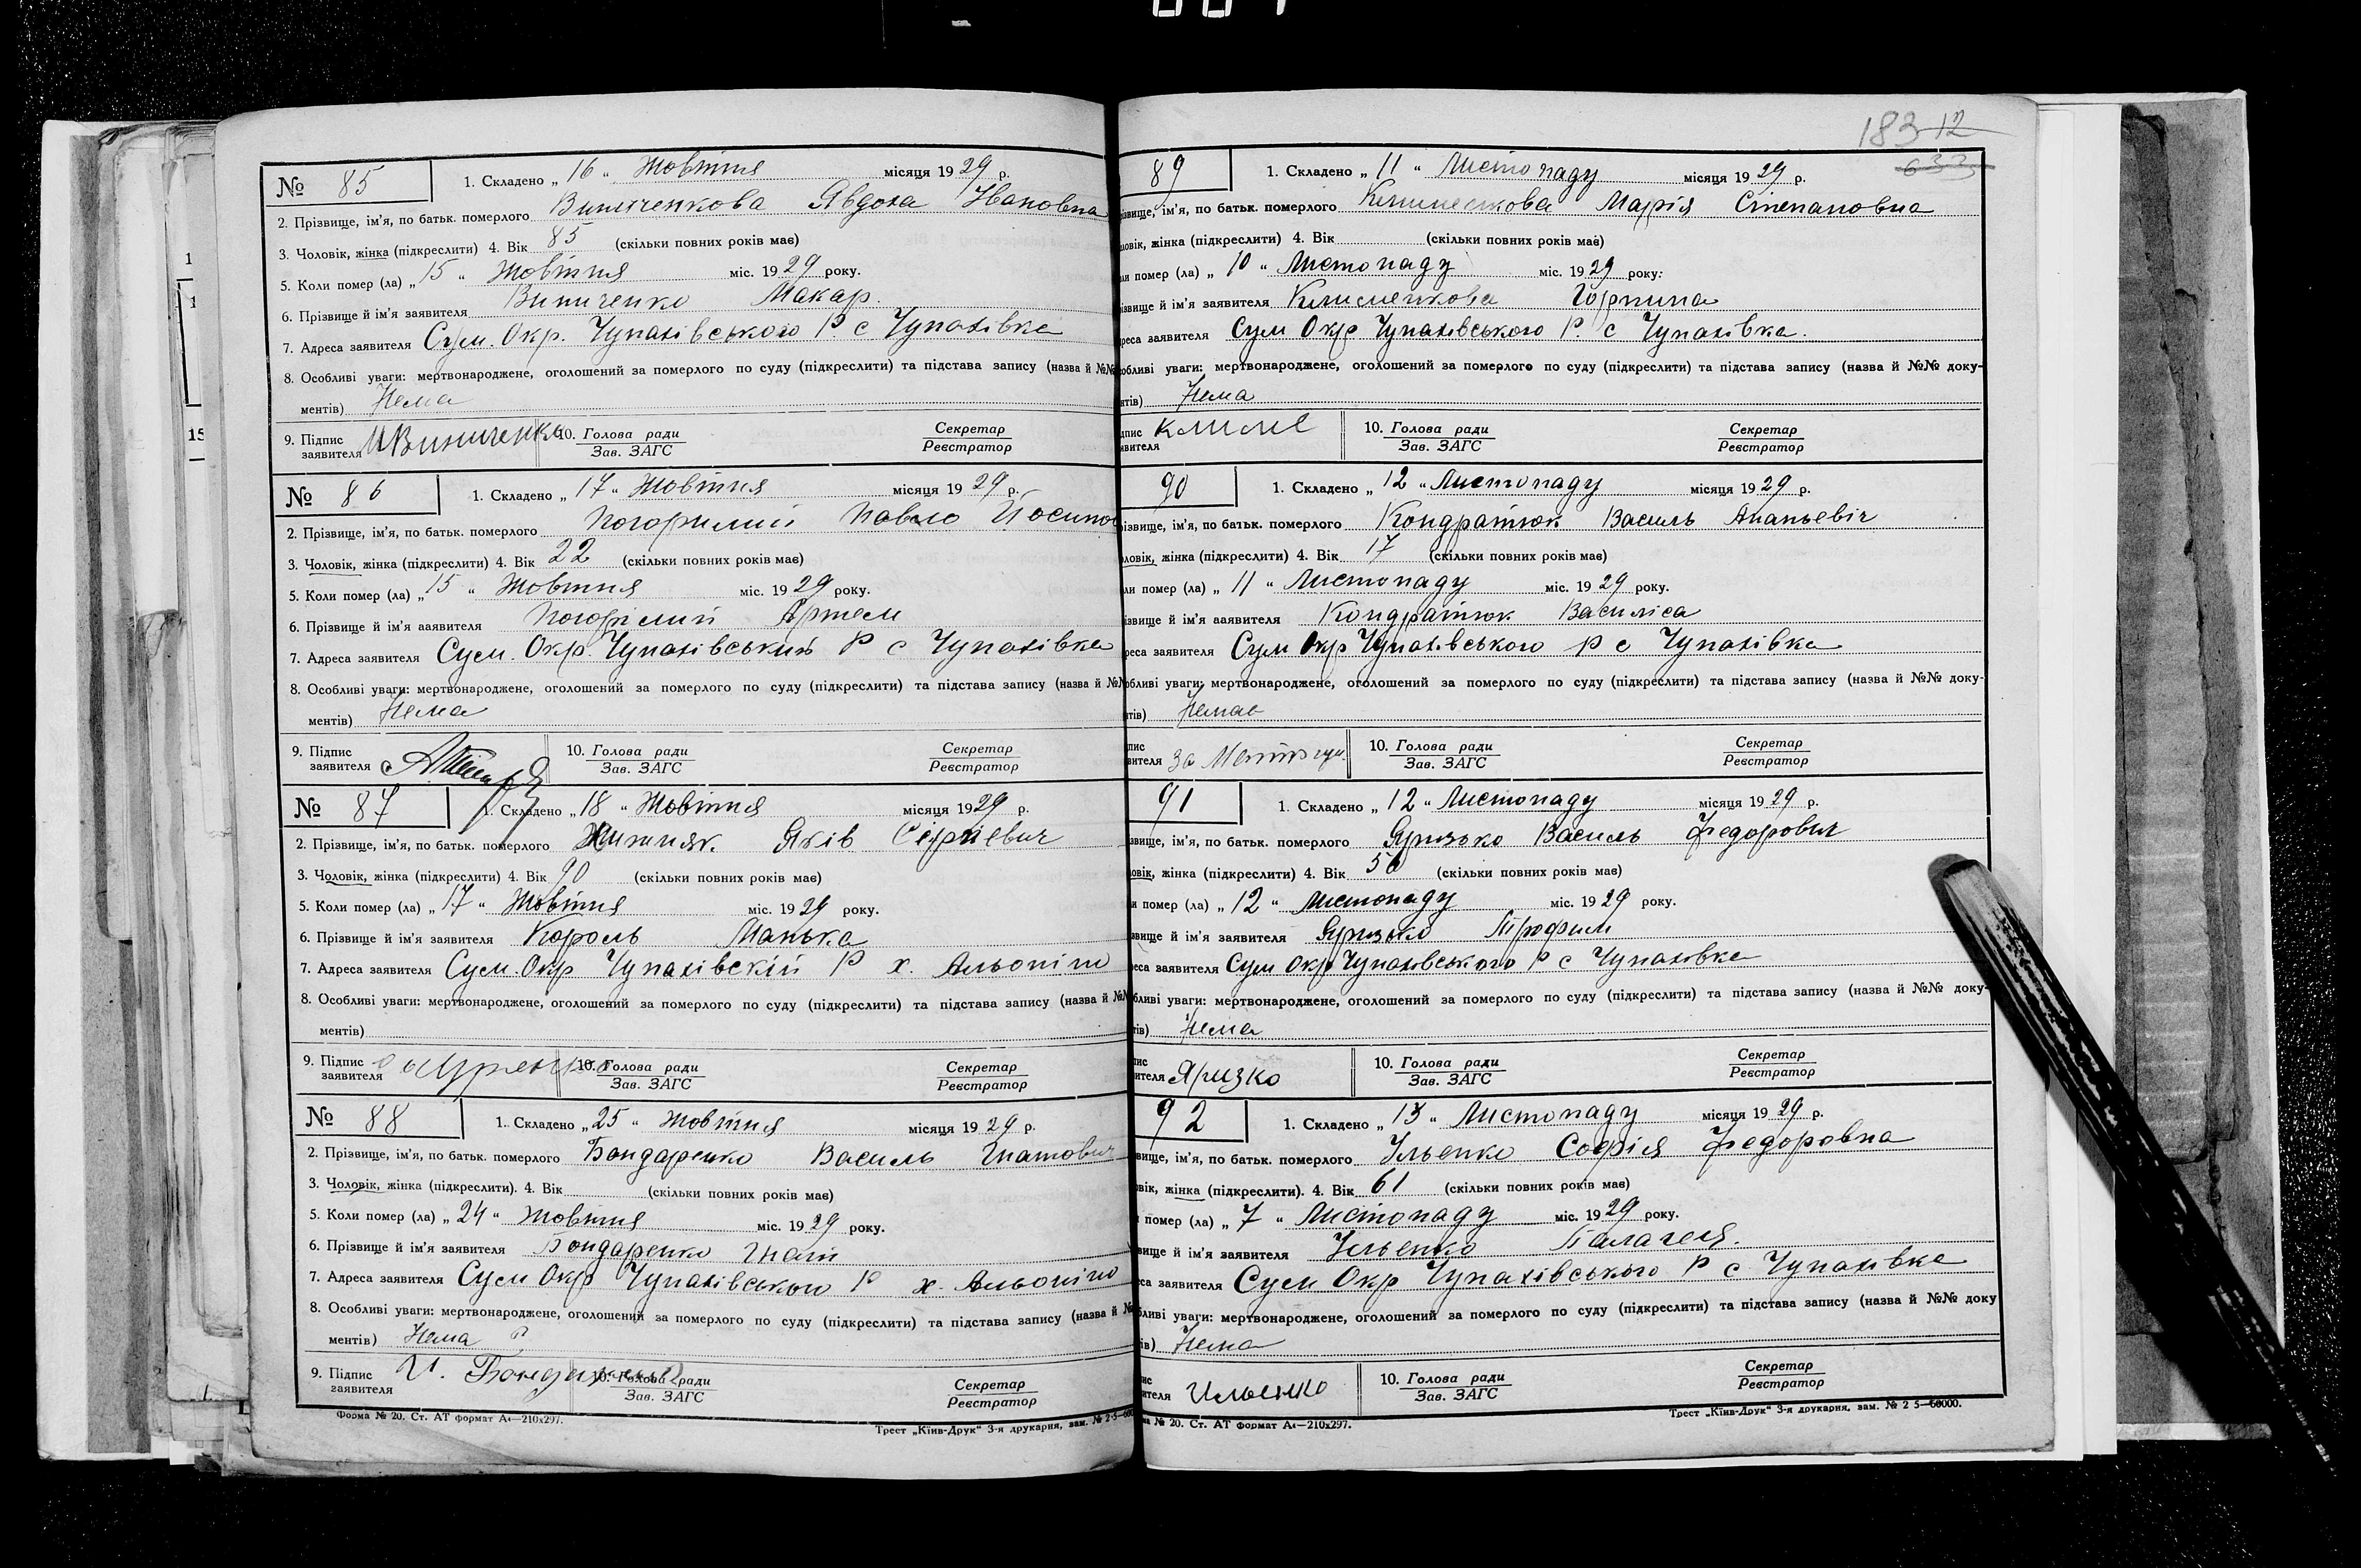 183 12
№ 85 1. Складено „ 16 " Жовтня місяця 1929 р.
2. Прізвище, ім'я, по батьк. померлого Виниченкова Явдоха Івановна
3. Чоловік, жінка (підкреслити) 4. Вік 85 (скільки повних років має)
5. Коли помер (ла) „ 15 " Жовтня міс. 1929 року.
6. Прізвище й ім'я заявителя Виниченко Макар.
7. Адреса заявителя Сум. Окр. Чупахівського Р. с Чупахівка
8. Особливі уваги: мертвонароджене, оголошений за померлого по суду (підкреслити) та підстава запису (назва й №№
ментів) Нема
9. Підпис заявителя МВиниченко 10. Голова ради Зав. ЗАГС Секретар Реєстратор
№ 86 1. Складено „ 17 " Жовтня місяця 1929 р.
2. Прізвище, ім'я, по батьк. померлого Погорилий Павло Йосипов
3. Чоловік, жінка (підкреслити) 4. Вік 22 (скільки повних років має)
5. Коли помер (ла) „ 15 " Жовтня міс. 1929 року.
6. Прізвище й ім'я заявителя Погорілий Артем
7. Адреса заявителя Сум. Окр. Чупахівський Р с Чупахівка
8. Особливі уваги: мертвонароджене, оголошений за померлого по суду (підкреслити) та підстава запису (назва й №
ментів) Нема
9. Підпис заявителя 10. Голова ради Зав. ЗАГС Секретар Реєстратор
№ 87 1. Складено „ 18 " Жовтня місяця 1929 р.
2. Прізвище, ім'я, по батьк. померлого Яків Сергіевич
3. Чоловік, жінка (підкреслити) 4. Вік 90 (скільки повних років має)
5. Коли помер (ла) „ 17 " Жовтня міс. 1929 року.
6. Прізвище й ім'я заявителя Король Манька
7. Адреса заявителя Сум. Окр Чупахівскій Р х.
8. Особливі уваги: мертвонароджене, оголошений за померлого по суду (підкреслити) та підстава запису (назва й №
ментів)
9. Підпис заявителя 10. Голова ради Зав. ЗАГС Секретар Реєстратор
№ 88 1. Складено „ 25 " Жовтня місяця 1929 р.
2. Прізвище, ім'я, по батьк. померлого Бондаренко Василь Гнатович
3. Чоловік, жінка (підкреслити). 4. Вік (скільки повних років має)
5. Коли помер (ла) „ 24 " Жовтня міс. 1929 року.
6. Прізвище й ім'я заявителя Бондаренко Гнат
7. Адреса заявителя Сум Окр Чупахівського Р х.
8. Особливі уваги: мертвонароджене, оголошений за померлого по суду (підкреслити) та підстава запису (назва й №
ментів) Нема
9. Підпис заявителя И. Бондаренко 10. Голова ради Зав. ЗАГС Секретар Реєстратор
Форма № 20. Ст. АТ формат А4—210х297. Трест „Київ-Друк" 3-я друкарня, зам. № 2 5—600
89 1. Складено „ 11 " Листопаду місяця 1929 р.
ізвище, ім'я, по батьк. померлого Клименкова Марія Степановна
ловік, жінка (підкреслити) 4. Вік (скільки повних років має)
ли помер (ла) „ 10 " Листопаду міс. 1929 року.
ізвище й ім'я заявителя Клименкова Горпина
реса заявителя Сум Окр Чупахівського Р. с Чупахівка.
обливі уваги: мертвонароджене, оголошений за померлого по суду (підкреслити) та підстава запису (назва й №№ доку-
нтів) Нема
дпис явителя Климе 10. Голова ради Зав. ЗАГС Секретар Реєстратор
90 1. Складено „ 12 " Листопаду місяця 1929 р.
різвище, ім'я, по батьк. померлого Кондратюк Василь Ананьевіч
ловік, жінка (підкреслити) 4. Вік 17 (скільки повних років має)
ли помер (ла) „ 11 " Листопаду міс. 1929 року.
ізвище й ім'я заявителя Кондратюк Василіса
реса заявителя Сум Окр Чупахівського Р с Чупахівка
обливі уваги: мертвонароджене, оголошений за померлого по суду (підкреслити) та підстава запису (назва й №№ доку-
нтів) Немає
пис вителя За 10. Голова ради Зав. ЗАГС Секретар Реєстратор
91 1. Складено „ 12 " Листопаду місяця 1929 р.
звище, ім'я, по батьк. померлого Яризько Василь Федорович
овік, жінка (підкреслити) 4. Вік 50 (скільки повних років має)
и помер (ла) „ 12 " Листопаду міс. 1929 року.
звище й ім'я заявителя Яризько Трофим
еса заявителя Сум Окр Чупахівського Р с Чупахівка
бливі уваги: мертвонароджене, оголошений за померлого по суду (підкреслити) та підстава запису (назва й №№ доку-
тів) Нема
пис ителя Яризко 10. Голова ради Зав. ЗАГС Секретар Реєстратор
92 1. Складено „ 13 " Листопаду місяця 1929 р.
вище, ім'я, по батьк. померлого Ільенко Софія Федоровна
вік, жінка (підкреслити). 4. Вік 61 (скільки повних років має)
помер (ла) „ 7 " Листопаду міс. 1929 року.
вище й ім'я заявителя Ільенко Палагея.
са заявителя Сум Окр Чупахівського Р с Чупахівка
ливі уваги: мертвонароджене, оголошений за померлого по суду (підкреслити) та підстава запису (назва й №№ доку
ів) Нема
ис ителя Ильенко 10. Голова ради Зав. ЗАГС Секретар Реєстратор
ма № 20. Ст. АТ формат А4—210х297. Трест „Київ-Друк" 3-я друкарня, зам. № 2 5—60000.